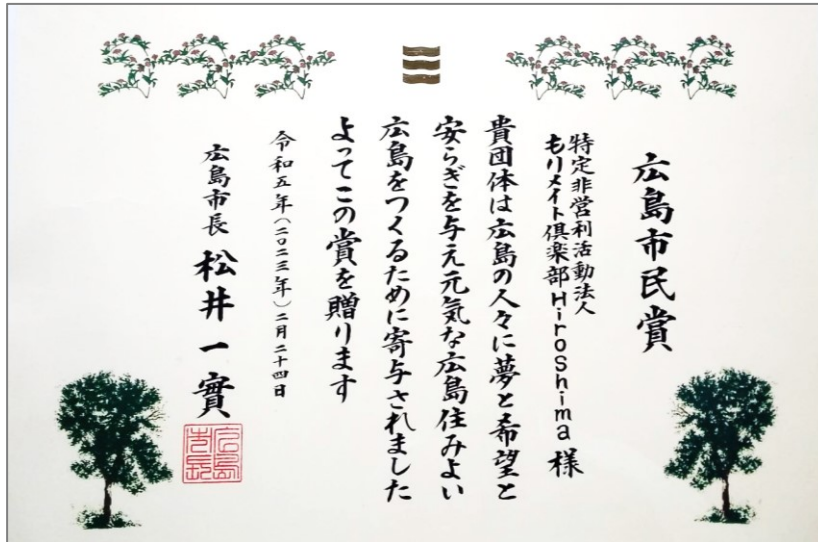 広島市民賞
特定非営利活動法人
もりメイト倶楽部Hiroshima 様
貴団体は広島の人々に夢と希望と
安らぎを与え元気な広島住みよい
広島をつくるために寄与されました
よってこの賞を贈ります
令和五年(二〇二三年)二月二十四日
広島市長 松井一實
広島市長